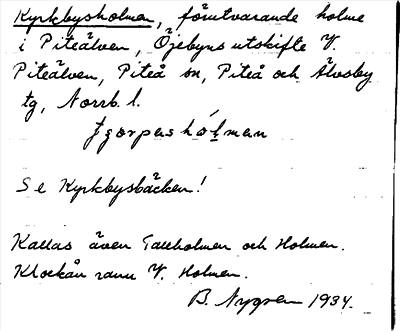 Kyrkbysholmen, förutvarande holme
i Piteälven, Öjebyns utskifte V.
Piteälven, Piteå sn, Piteå och Älvsby
tg, Norrb. l.
hólman
Se Kyrkbysbäcken!
Kallas även Tallholmen och Holmen.
Klockån rann V. Holmen.
B. Nygren 1934.